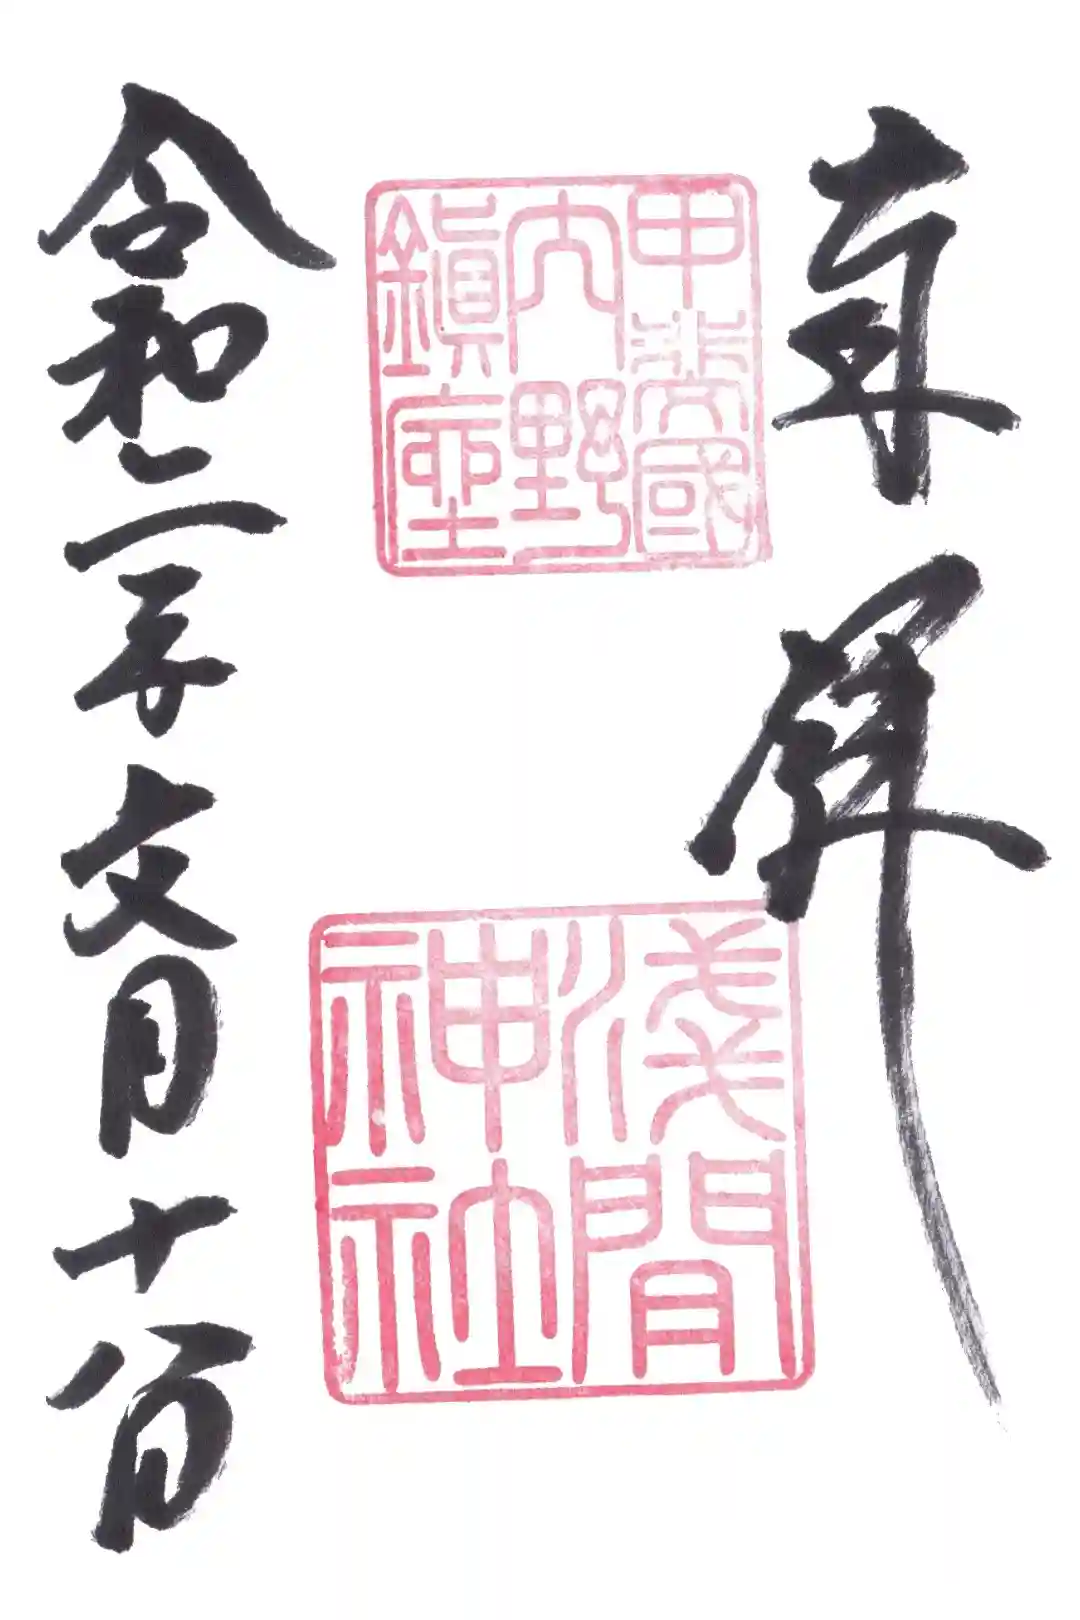 奉拝
甲斐國
大野
鎮座
浅間
神社
令和二年文月十八日